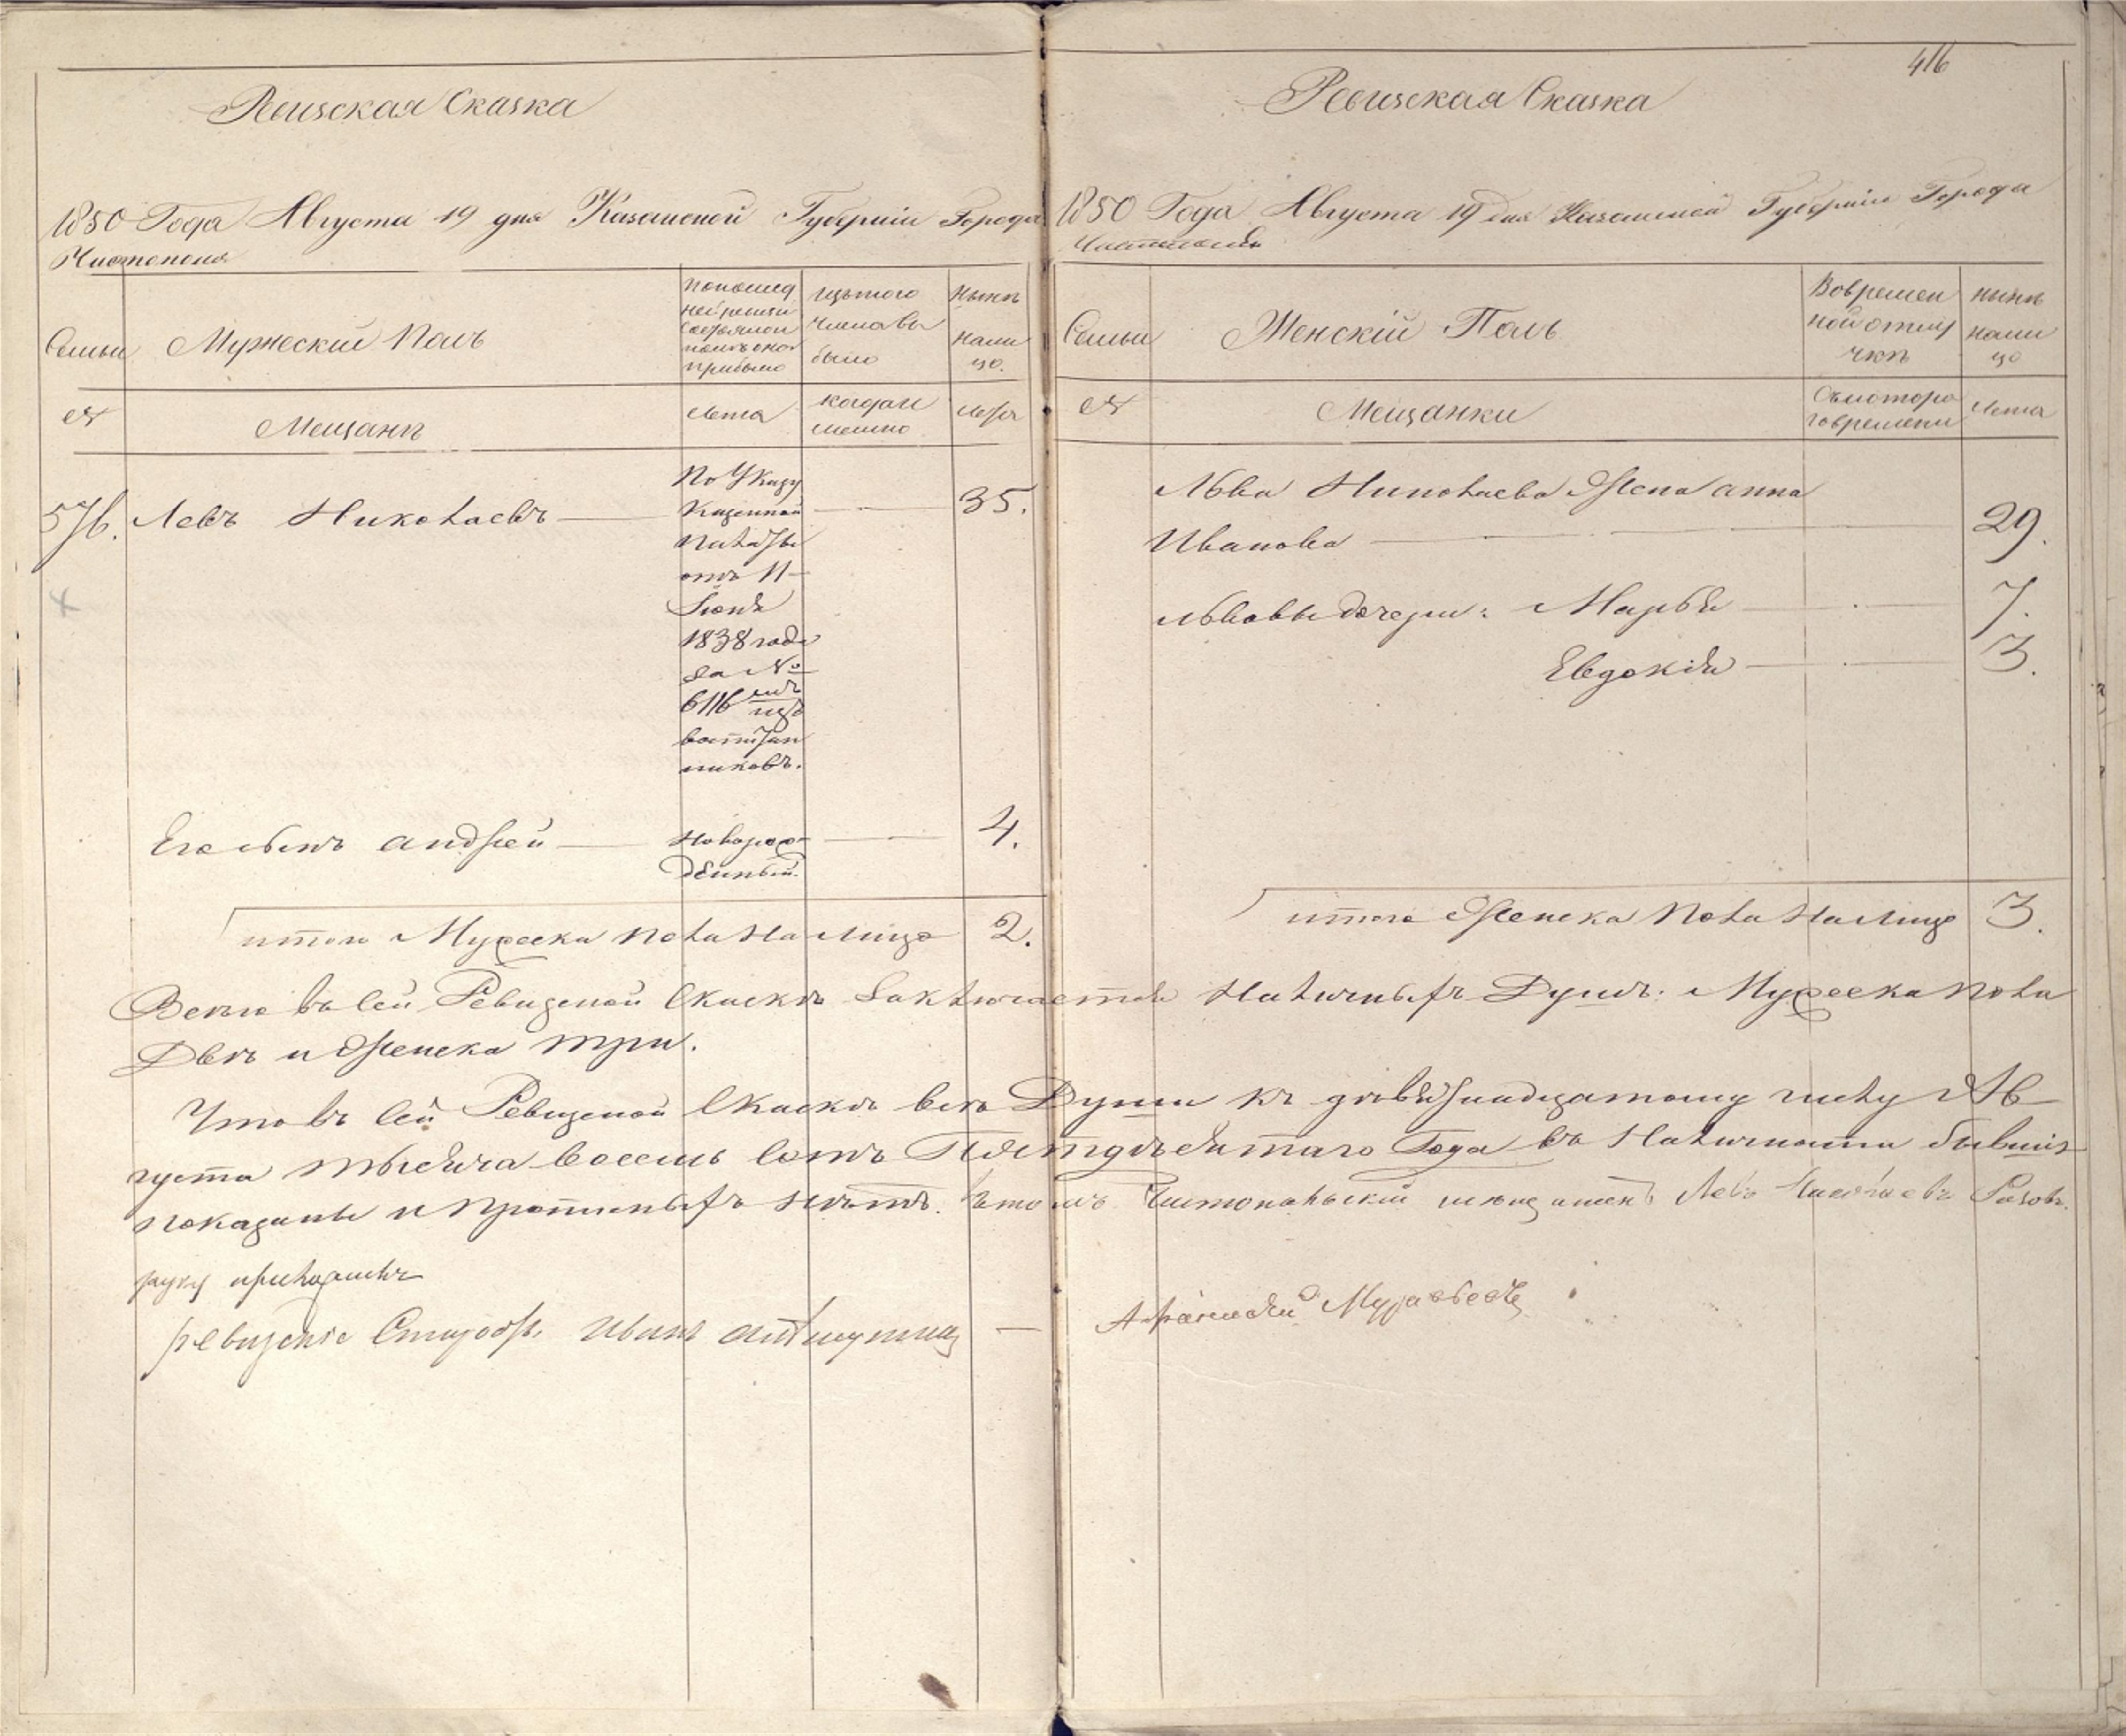 Ревизская Сказка
1850 Года Августа 19 дня Казанской Губернiи Города
Чистополя
Семьи
Мужескiй Полъ
По послед
ней ревизiи
состояло и
после оной
прибыло
Изъ того
числа вы
было
Нынѣ
на ли
цо.
№
Мещанѣ
Лета
когда и
менно
Лета
576. Левъ Николаевъ
По Указу
Казенной
Палаты
отъ 11
Iюня
1838 года
за №
6116
изъ
воспитан
никовъ.
35.
Его сынъ Андрей
Новорож
денный.
4.
итого Мужеска Пола На лицо 2.
416
Ревизская Сказка
1850 Года Августа 19 дня Казанской Губернiи Города
Чистополя
Семьи
Женскiй Полъ
Во времен
ной отлу
чкѣ
Нынѣ
на ли
цо
№
Мещанки
Съ котора
го времени
Лета
Льва Николаева Жена Анна
Иванова 29.
Львовы дочери: Марья 7.
Евдокiя 3.
итого Женска Пола На Лицо 3.
Всего въ сей Ревизской Сказкѣ Заключается Наличныхъ Душъ: Мужеска пола
Двѣ и Женска три.
Что въ сей Ревизской Сказкѣ всѣ Души къ девятнадцатому числу Ав
густа тысяча восемь сотъ Пятдесятаго Года въ Наличности бывшiя
показаны и прописныхъ нѣтъ. въ томъ Чистопольскiй мещанинъ Левъ Николаевъ
руку приложилъ
ревизскiе Старосты Иванъ
Афанасiй Муравьевъ